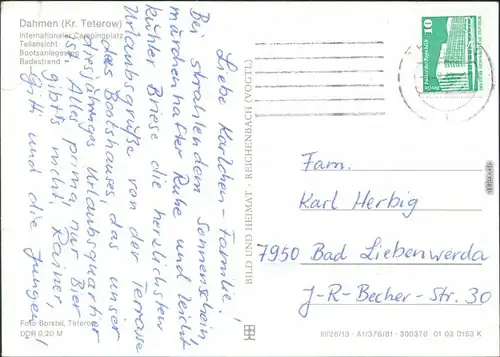 Dahmen (Kr. Teterow)
Internationaler Campingplatz
Teilansicht
Bootsanlegesteg
Badestrand
Liebe Karlchen-Familie!
Bei strahlendem Sonnenschein,
märchenhafter Ruhe und leicht
kühler Briese die herzlichsten
Urlaubsgrüße von der Terrasse
des Bootshauses, das unser
diesjähriges Urlaubsquartier
ist. Alles prima, nur Bier
gibt's nicht! Rainer,
Gitti und die Jungen!
Foto-Borstel, Teterow
DDR 0,20 M
BILD UND HEIMAT · REICHENBACH (VOGTL)
10
Fam.
Karl Herbig
7950 Bad Liebenwerda
J-R-Becher-Str. 30
III/26/13 · A1/376/81 · 300376 01 03 0153 K